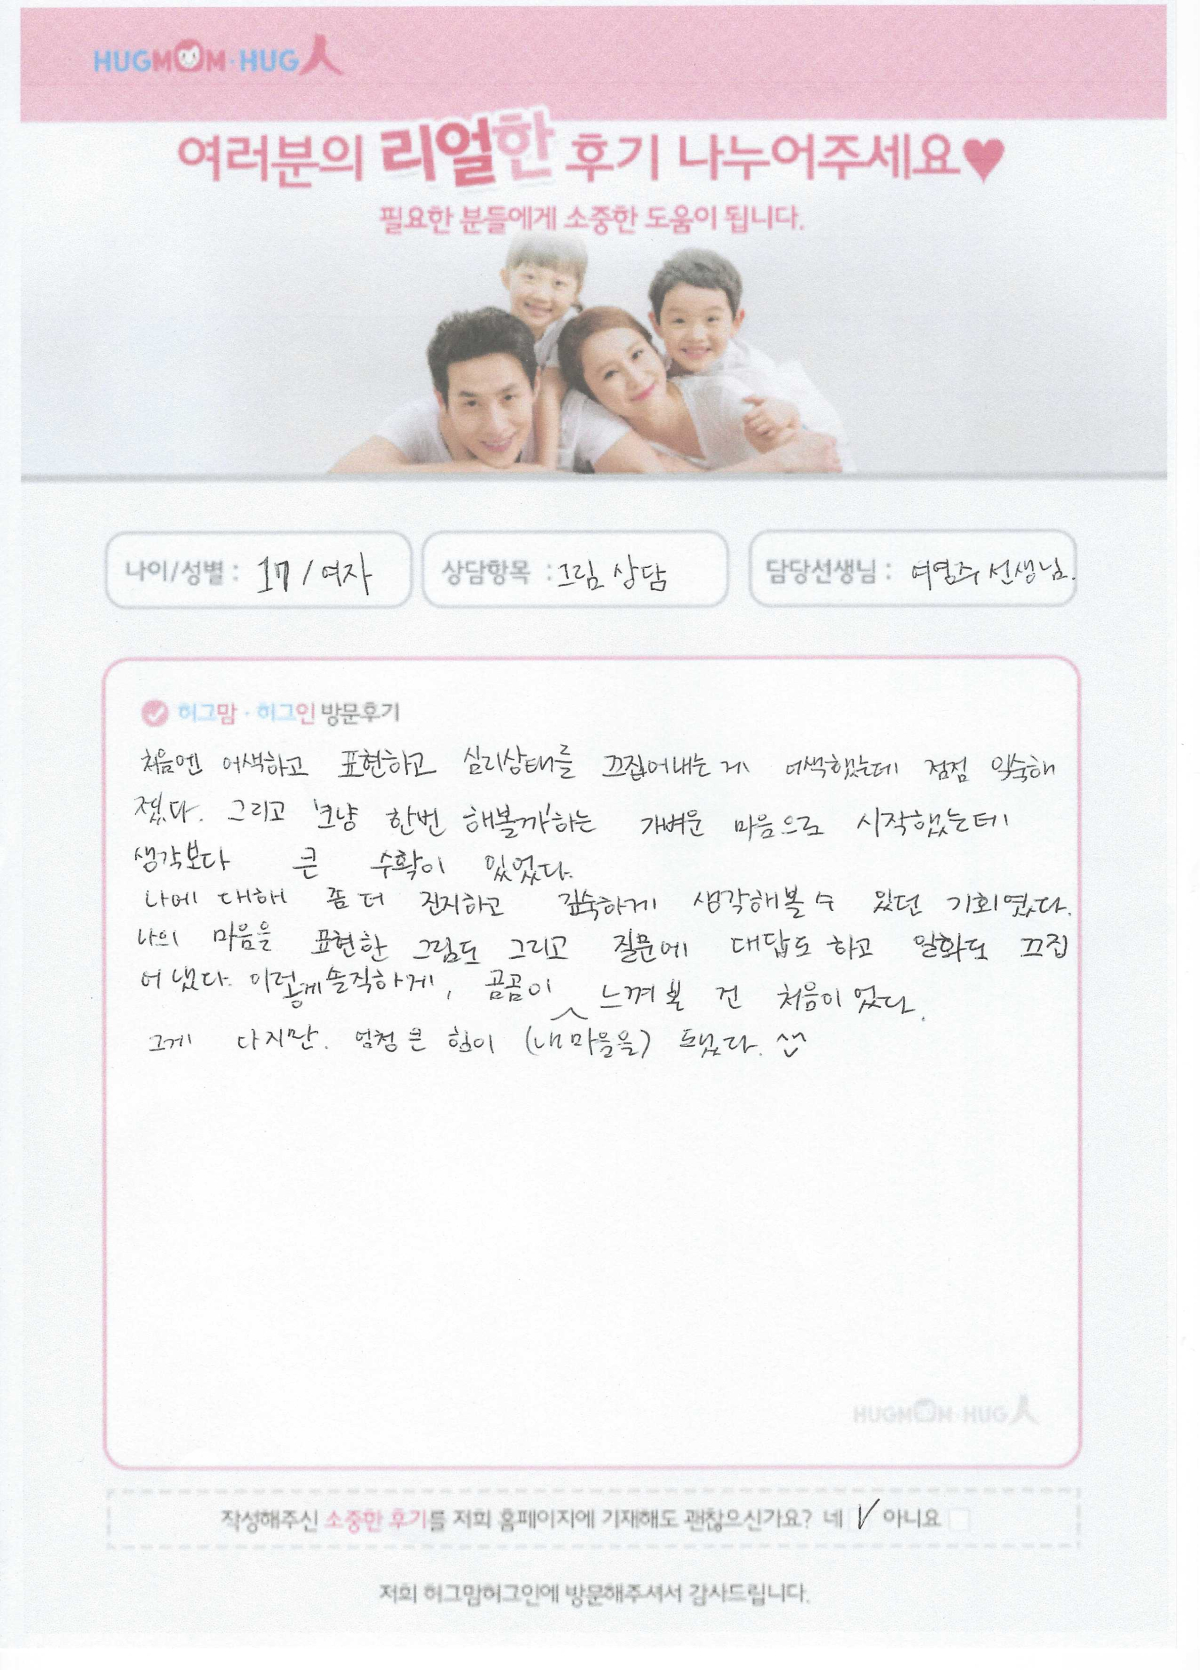 HUGMOM·HUG人
여러분의 리얼한 후기 나누어주세요♥
필요한 분들에게 소중한 도움이 됩니다.
나이/성별 : 17 / 여자
상담항목 : 그림 상담
담당선생님 : 여영주 선생님.
허그맘 · 허그인 방문후기
처음엔 어색하고 표현하고 심리상태를 끄집어내는게 어색했는데 점점 익숙해
졌다. 그리고 '그냥 한번 해볼까'하는 가벼운 마음으로 시작했는데
생각보다 큰 수확이 있었다.
나에 대해 좀 더 진지하고 깊숙하게 생각해볼 수 있던 기회였다.
나의 마음을 표현한 그림도 그리고 질문에 대답도 하고 일화도 끄집
어 냈다. 이렇게 솔직하게, 곰곰이 느껴 본 건 처음이었다.
그게 다지만. 엄청 큰 힘이 (내 마음을) 됐었다.
HUGMOM HUG人
작성해주신 소중한 후기를 저희 홈페이지에 기재해도 괜찮으신가요? 네 V 아니요
저희 허그맘허그인에 방문해주셔서 감사드립니다.